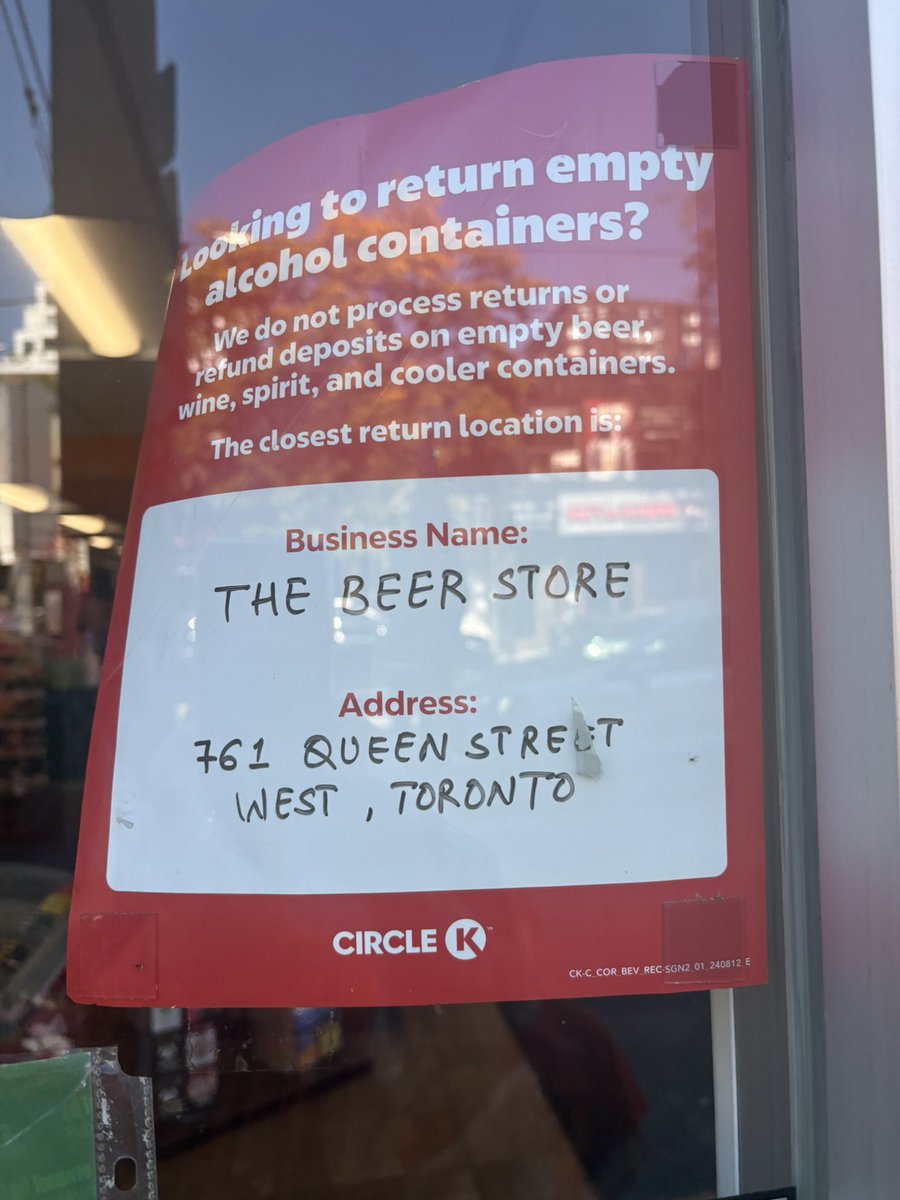 Looking to return empty
alcohol containers?
We do not process returns or
refund deposits on empty beer,
wine, spirit, and cooler containers.
The closest return location is:
Business Name:
THE BEER STORE
Address:
761 QUEEN STREET
WEST, TORONTO
CIRCLE K™
CK-C_COR_BEV_REC-SGN2_01_240812_E